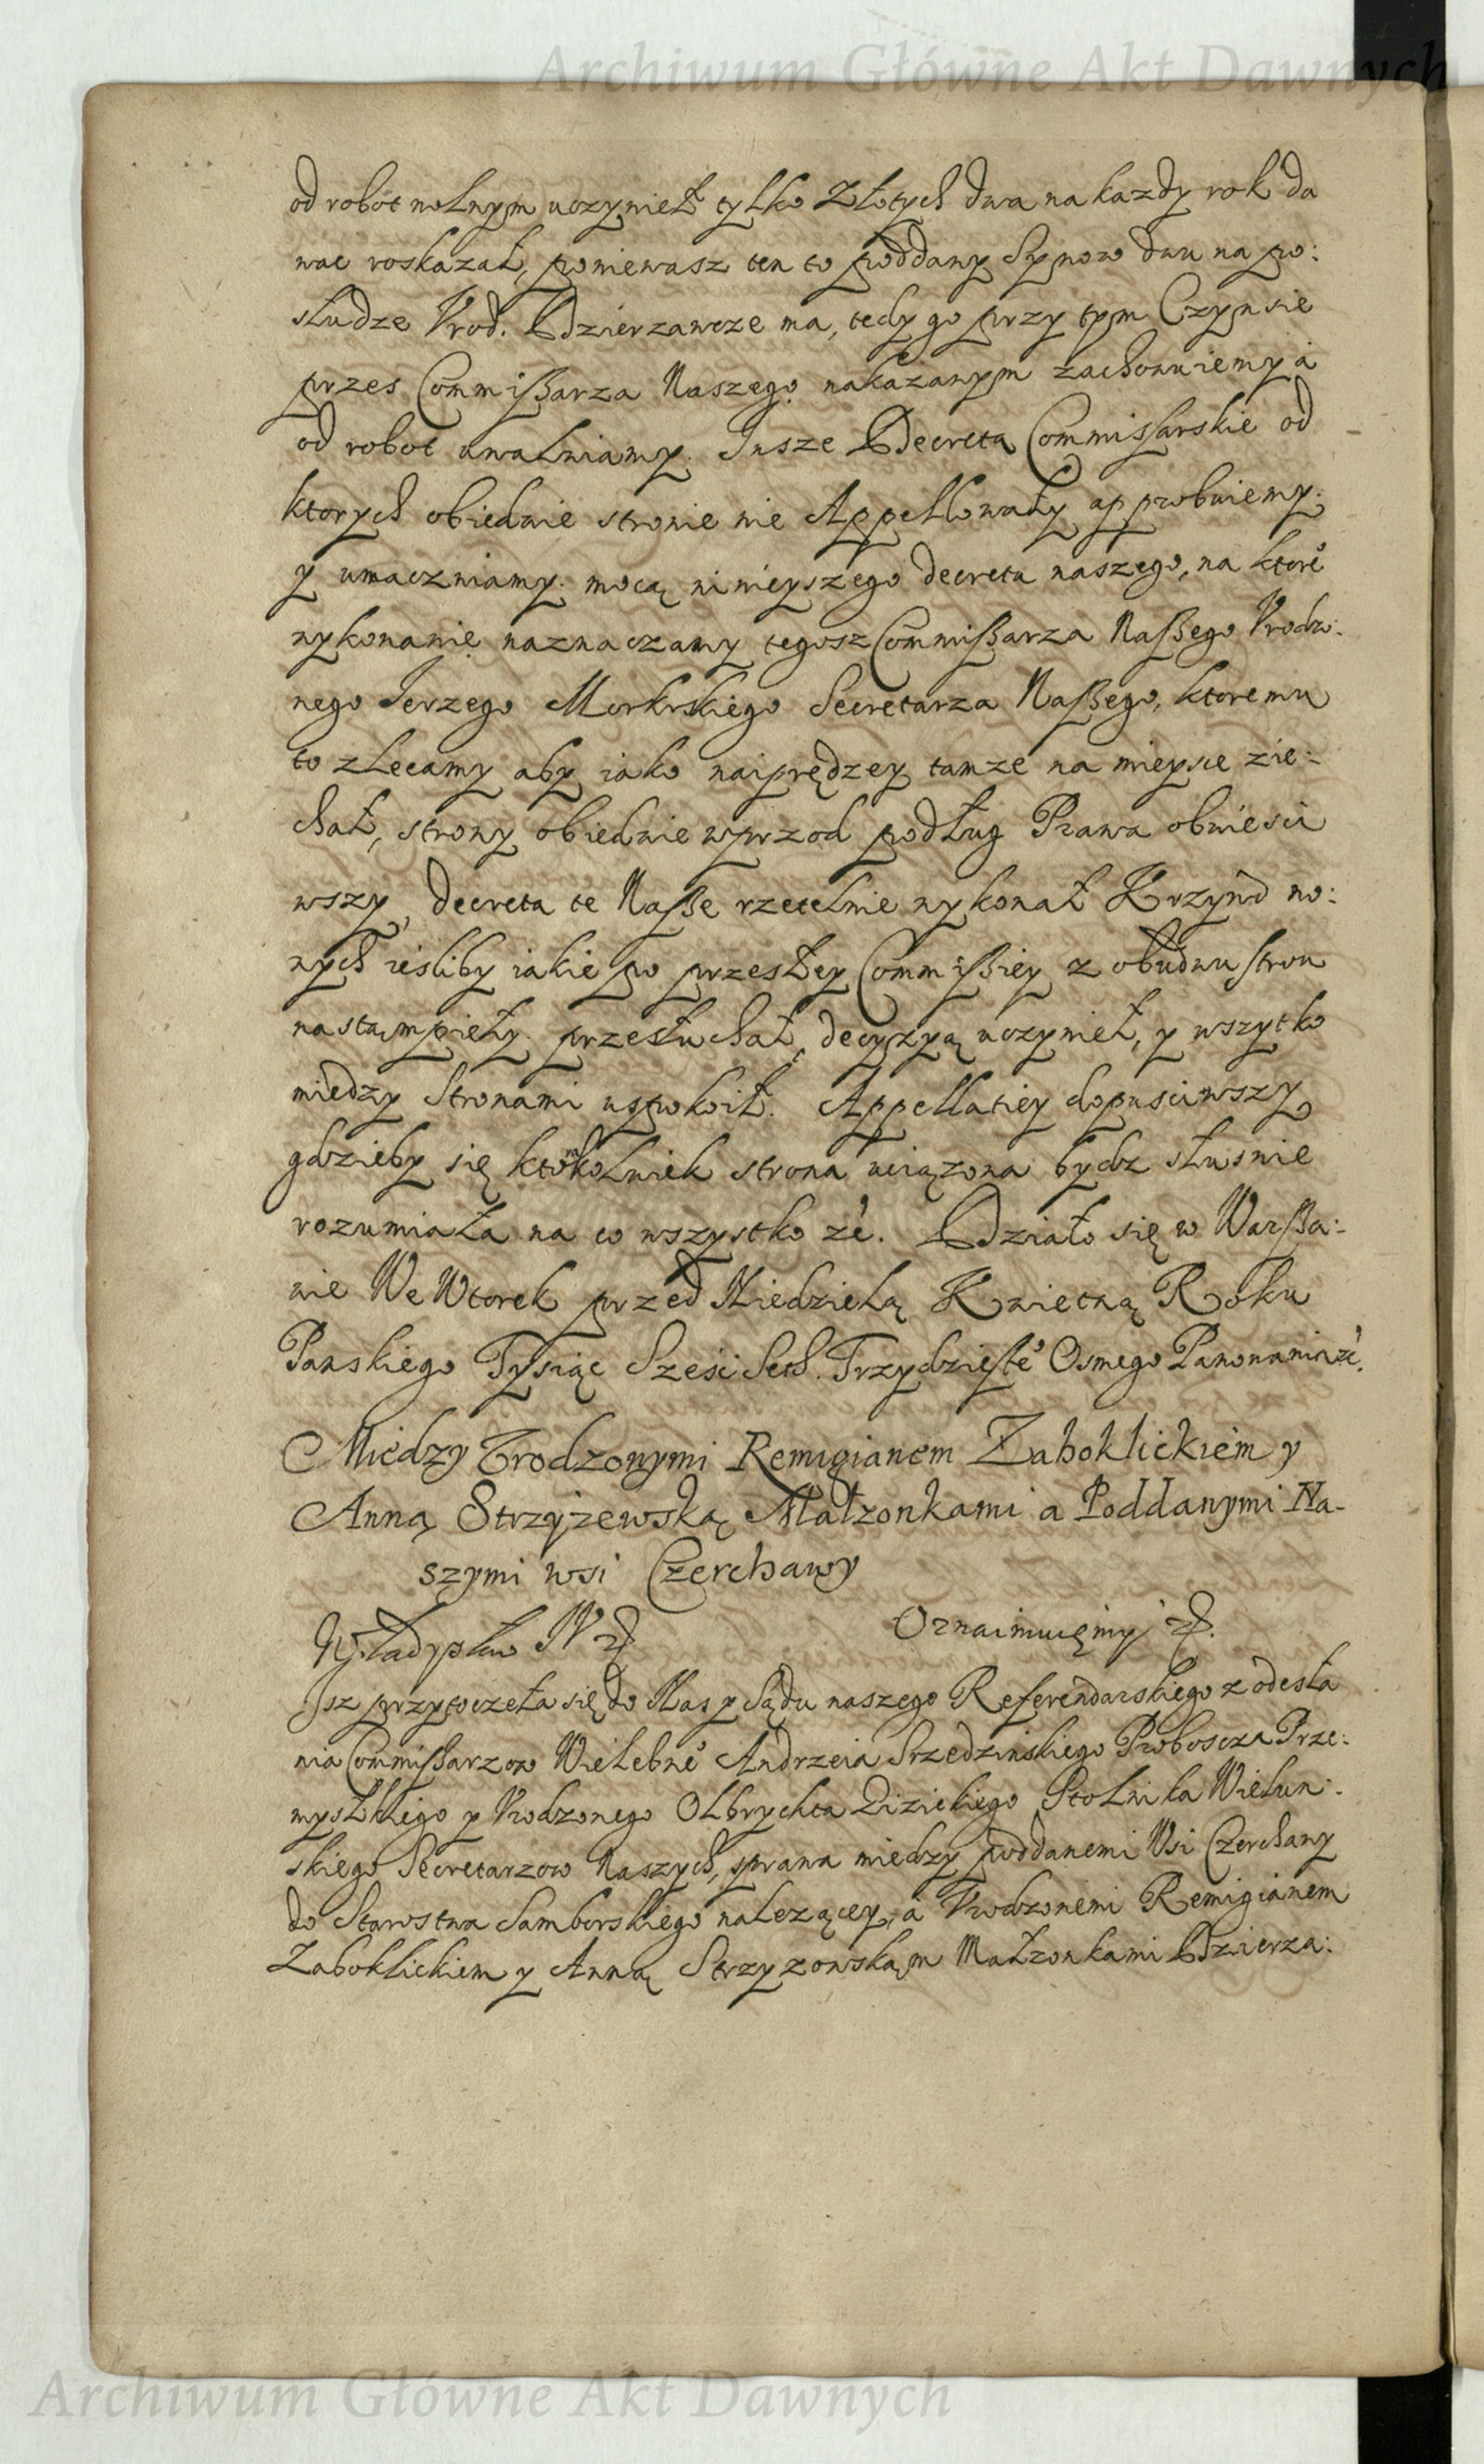 Archiwum Główne Akt Dawnych
od robot wolnym uczynieł tylko Złotych dwa na kazdy rok da
wac roskazał, poniewasz ten to poddany Synow dwu na po:
słudze Vrod. Dzierzawcze ma, tedy go przy tym Czynsie
przes Commißarza Naszego nakazanym zachowuiemy à
od robot uwalniamy. Insze Decreta Commissarskie od
ktorych obiedwie stronie nie Appellowały approbuiemy
y umaczniamy mocą ninieyszego decretu naszego, na ktore
wykonanie naznaczamy tegosz Commißarza Naßego Vrodzo:
nego Ierzego Secretarza Naßego, ktoremu
to zlecamy aby iako naiprędzey tamze na mieysce zie:
chał, strony obiedwie wprzod podług Prawa obwiesci
wszy, decreta te Naße rzetelnie wykonał Krzywd no:
wych iesliby iakie po przeszłey Commißiey z obudwu stron
nastąmpieły przesłuchał, decyzyą uczynieł, y wszytko
miedzy Stronami uspokoił. Appellatiey dopusciwszy
gdzieby się ktorakolwiek strona uciązona bydz słusnie
rozumiała na co wszystko zć. Działo się w Warßa:
wie We Wtorek przed Niedzielą Kwietną Roku
Panskiego Tysiąc Szesc Seth. Trzydzieste Osmego Panowania zć.
Miedzy Vrodzonymi Remigianem Zaboklickiem y
Anną Strzyżewską Małzonkami a Poddanymi Na-
szymi wsi Czerchawy
Władysław IV zć
Oznaimuięmy zć.
Isz przytoczeła się do Nas y Sądu naszego Referendarskiego z odesła
nia Commißarzow Wielebne Andrzeia Srzedzinskiego Proboscza Prze:
myslkiego y Vrodzonego Olbrychta Stolnika Wielun:
skiego Secretarzow Naszych, sprawa miedzy poddanemi Wsi Czerchawy
do Starostwa Samborskiego nalezącey, à Vrodzonemi Remigianem
Zaboklickiem y Anną Strzyzowskąm Małzonkami Dzierza:
Archiwum Główne Akt Dawnych